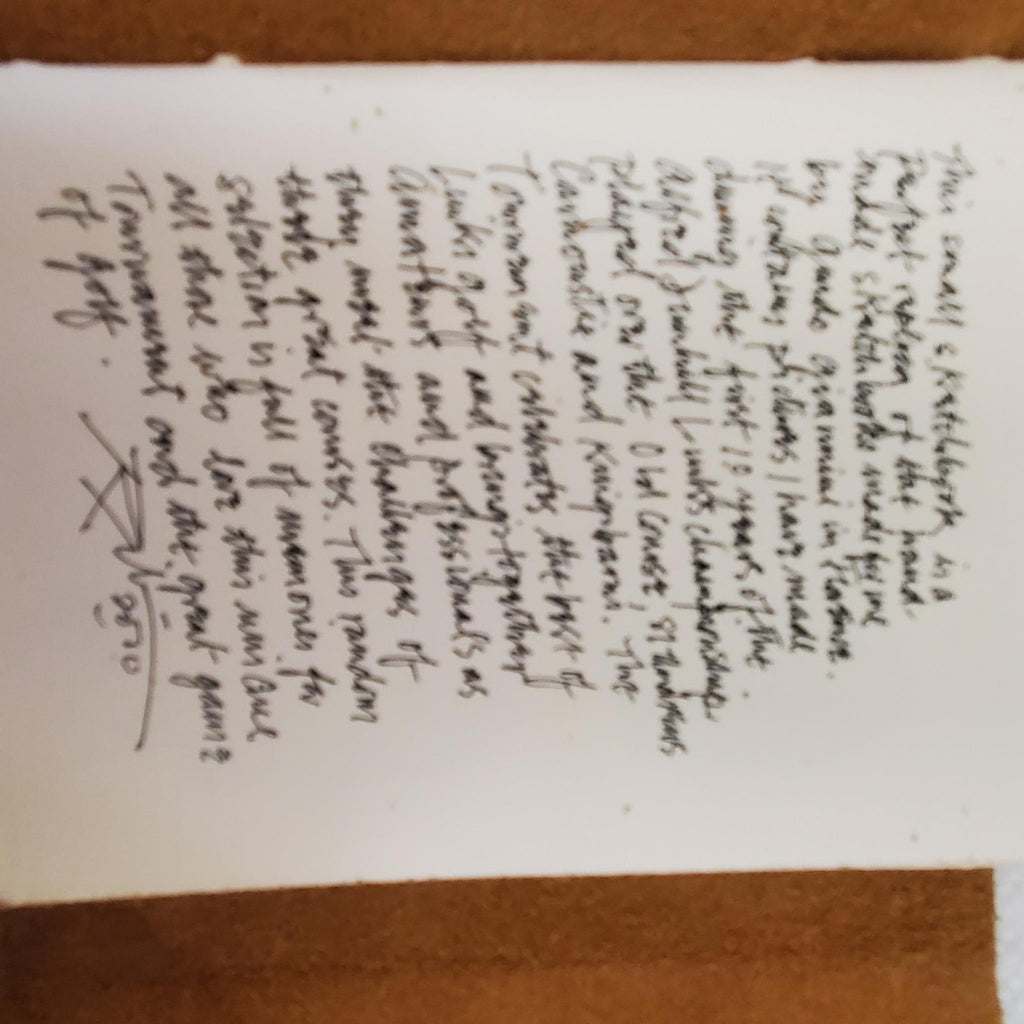 This small sketchbook is a
perfect replica of the hand-
made sketchbooks made for me
by Guido Giannini in Florence.
It contains pictures I have made
during the first 10 years of the
Alfred Dunhill Links Championships
played over the Old Course, St Andrews
Carnoustie and Kingsbarns. The
Tournament celebrates the best of
Links golf and brings together
amateurs and professionals as
they meet the challenges of
these great courses. This random
selection is full of memories for
all those who love this unique
Tournament and the great game
of golf.
2010